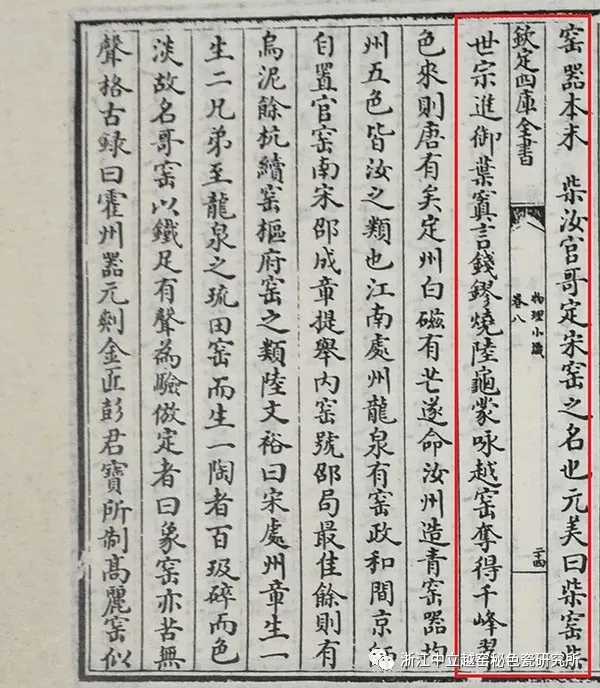 窑器本末 柴汝官哥定宋窑之名也元美曰柴窑柴
欽定四庫全書
物理小識
卷八
世宗進御葉寘言錢鏐燒陸龜蒙咏越窑奪得千峰翠
色來則唐有矣定州白磁有芒遂命汝州造青窑器均
州五色皆汝之類也江南處州龍泉有窑政和間京師
自置官窑南宋邵成章提舉内窑號邵局最佳餘則有
烏泥餘杭續窑樞府窑之類陸文裕曰宋處州章生一
生二兄弟至龍泉之琉田窑而生一陶者百圾碎而色
淡故名哥窑以鐵足有聲為驗倣定者曰象窑亦苦無
聲格古録曰霍州器元剏金匠彭君寳所制髙麗窑似
浙江中立越窑秘色瓷研究所